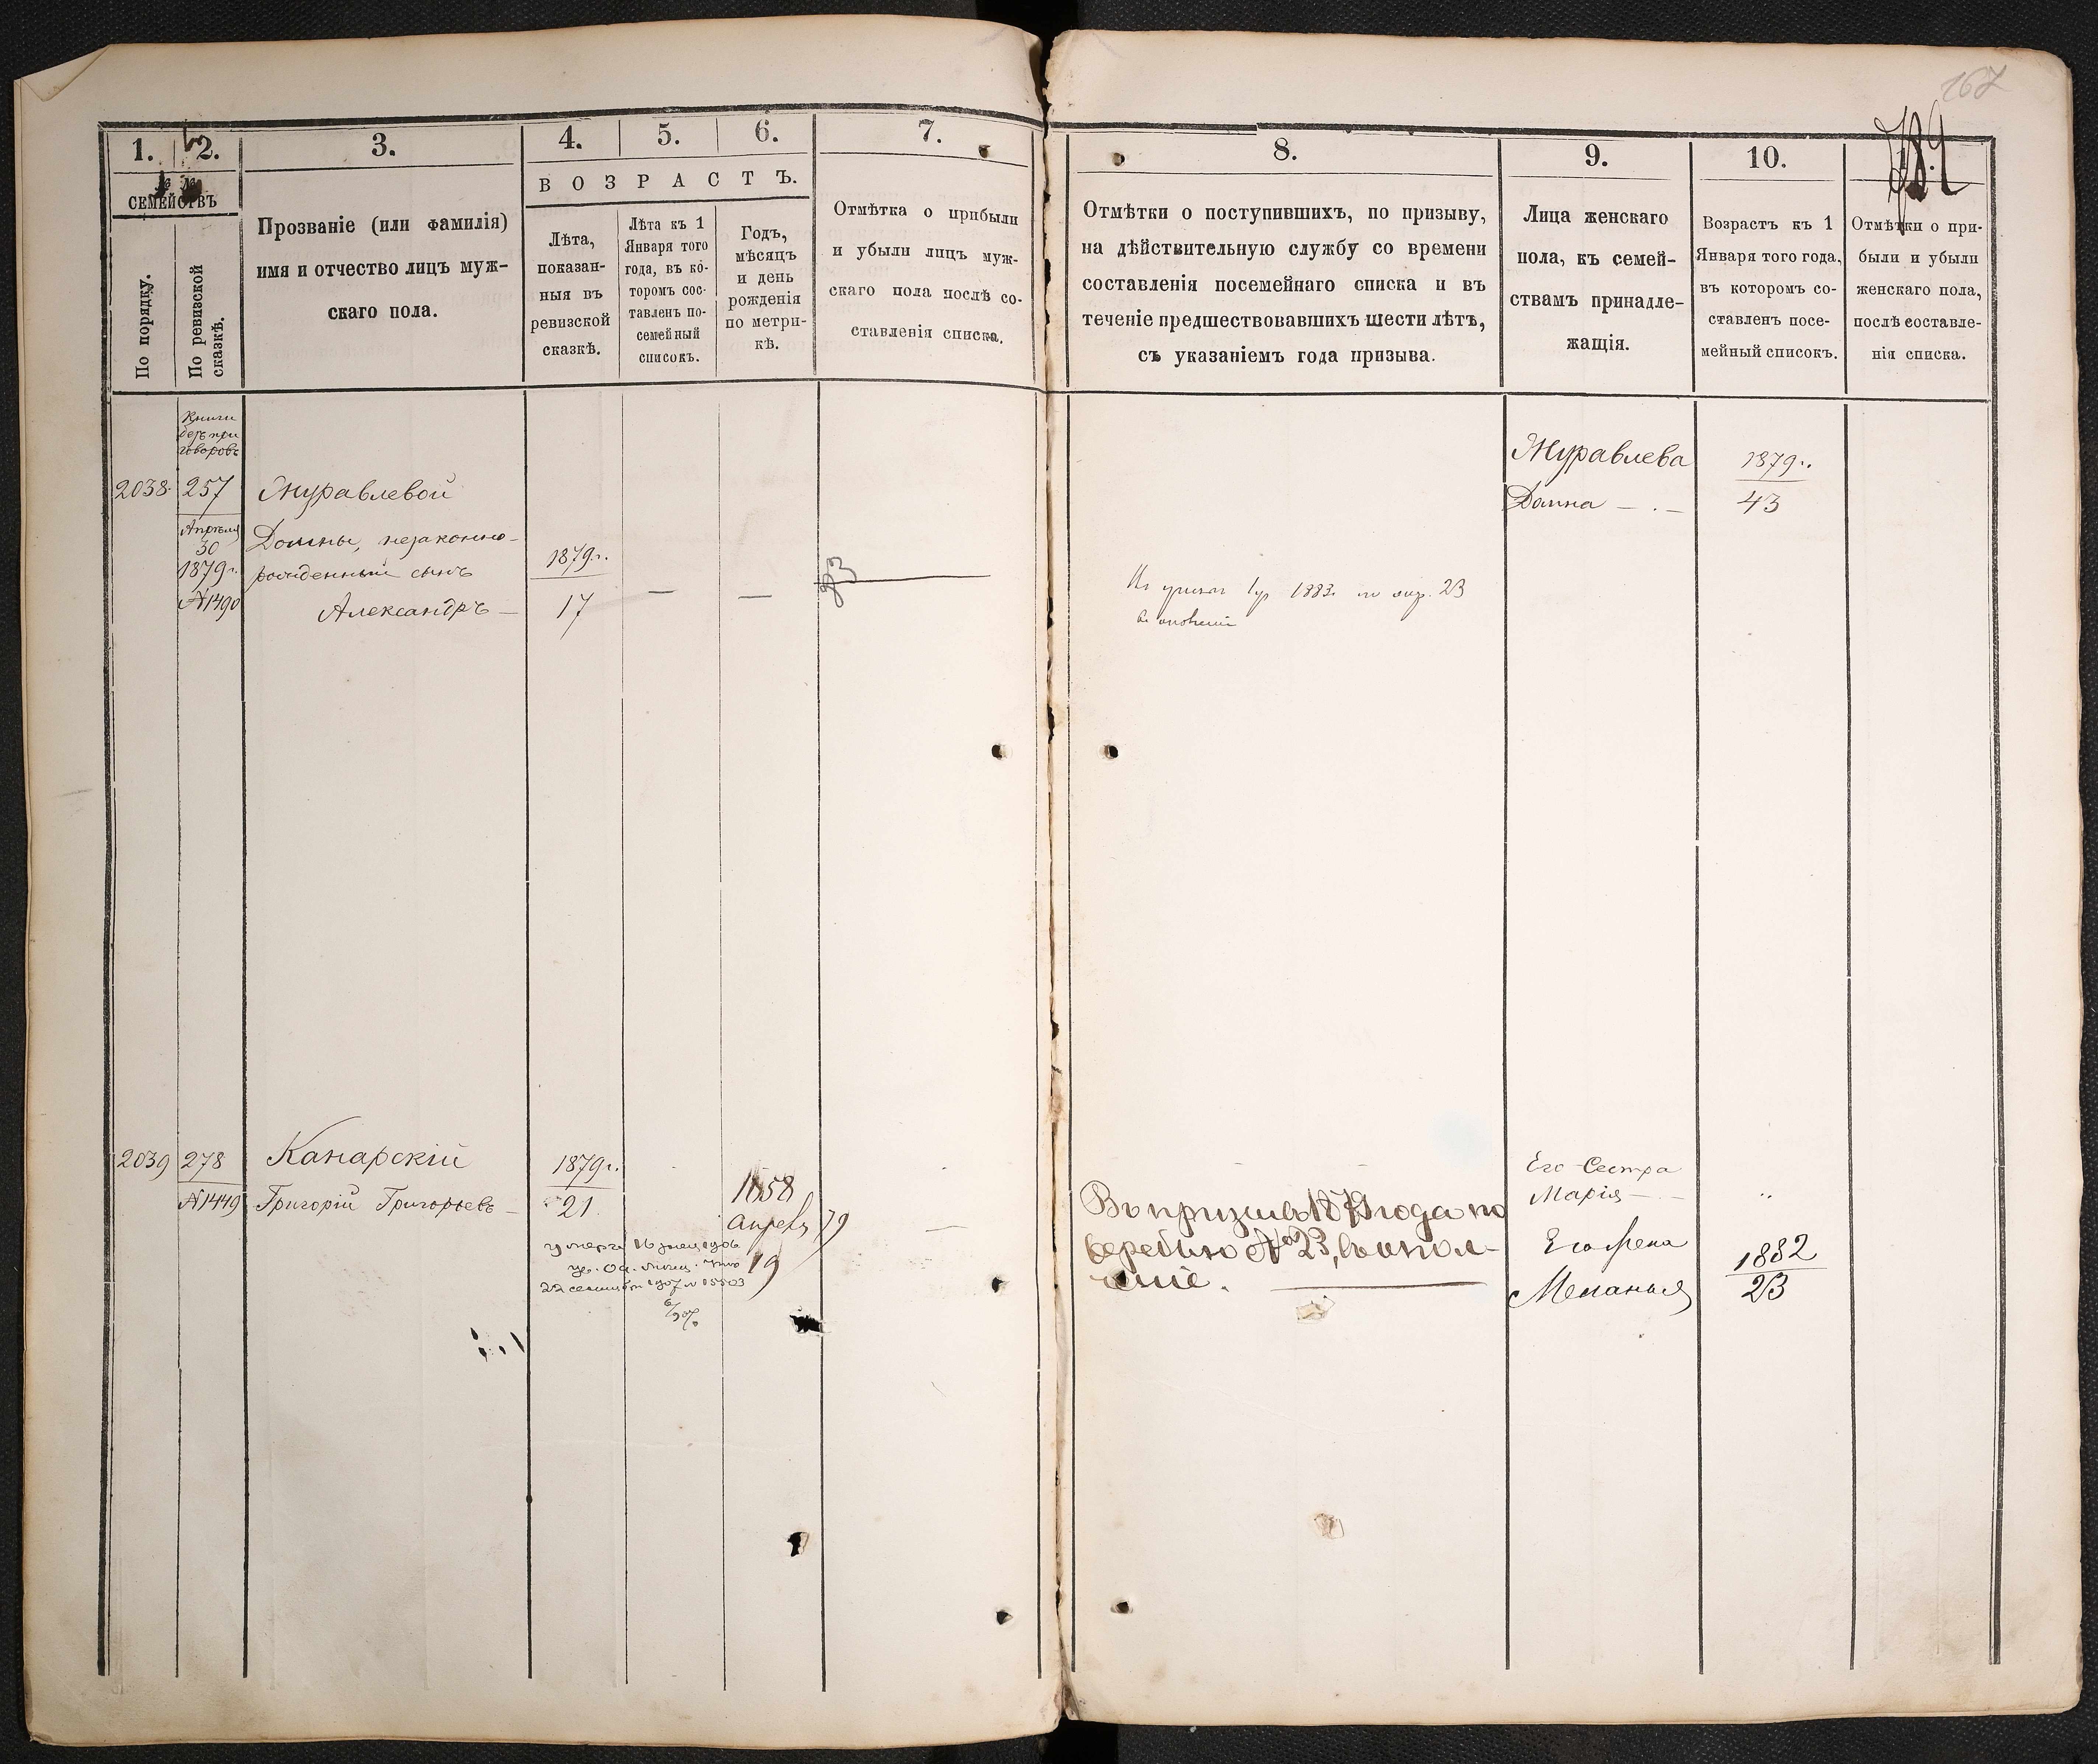 167
1.
2.
3.
4.
5.
6.
7.
№ №
СЕМЕЙСТВЪ
По порядку.
По ревизской
сказкѣ.
Прозваніе (или фамилія)
имя и отчество лицъ муж-
скаго пола.
В О З Р А С Т Ъ.
Лѣта,
показан-
ныя въ
ревизской
сказкѣ.
Лѣта къ 1
Января того
года, въ ко-
торомъ сос-
тавленъ по-
семейный
списокъ.
Годъ,
мѣсяцъ
и день
рожденія
по метри-
кѣ.
Отмѣтка о прибыли
и убыли лицъ муж-
скаго пола послѣ со-
ставленія списка.
8.
9.
10.
Отмѣтки о поступившихъ, по призыву,
на дѣйствительную службу со времени
составленія посемейнаго списка и въ
теченіе предшествовавшихъ шести лѣтъ,
съ указаніемъ года призыва.
Лица женскаго
пола, къ семей-
ствамъ принадле-
жащія.
Возрастъ къ 1
Января того года,
въ которомъ со-
ставленъ посе-
мейный списокъ.
Отмѣтки о при-
были и убыли
женскаго пола,
послѣ составле-
нія списка.
Книги
безъ при
говоровъ
2038. 257
Апрѣля
30
1879 г.
№ 1490
Журавлевой
Домны, незаконно-
рожденный сынъ
Александръ —
1879 г.
17
— —
83
1883 23
Журавлева
Домна — . —
1879 г.
43
2039 278
№ 1449
Канарскій
Григорій Григорьевъ —
1879 г.
21
1858
апреля
19
79
—
умеръ 16 1906
22 сентября 1907 № 15503
Въ призывъ 1879 года по
жеребью № 23, въ опол-
ченіе.
Его Сестра
Марія — . —
"
Его Жена
Меланья
1882
23